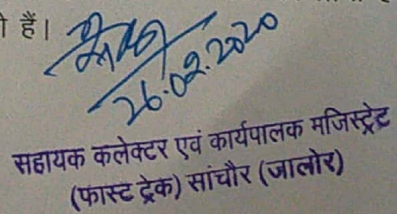 हैं।
26.02.2020
सहायक कलेक्टर एवं कार्यपालक मजिस्ट्रेट
(फास्ट ट्रेक) सांचौर (जालोर)